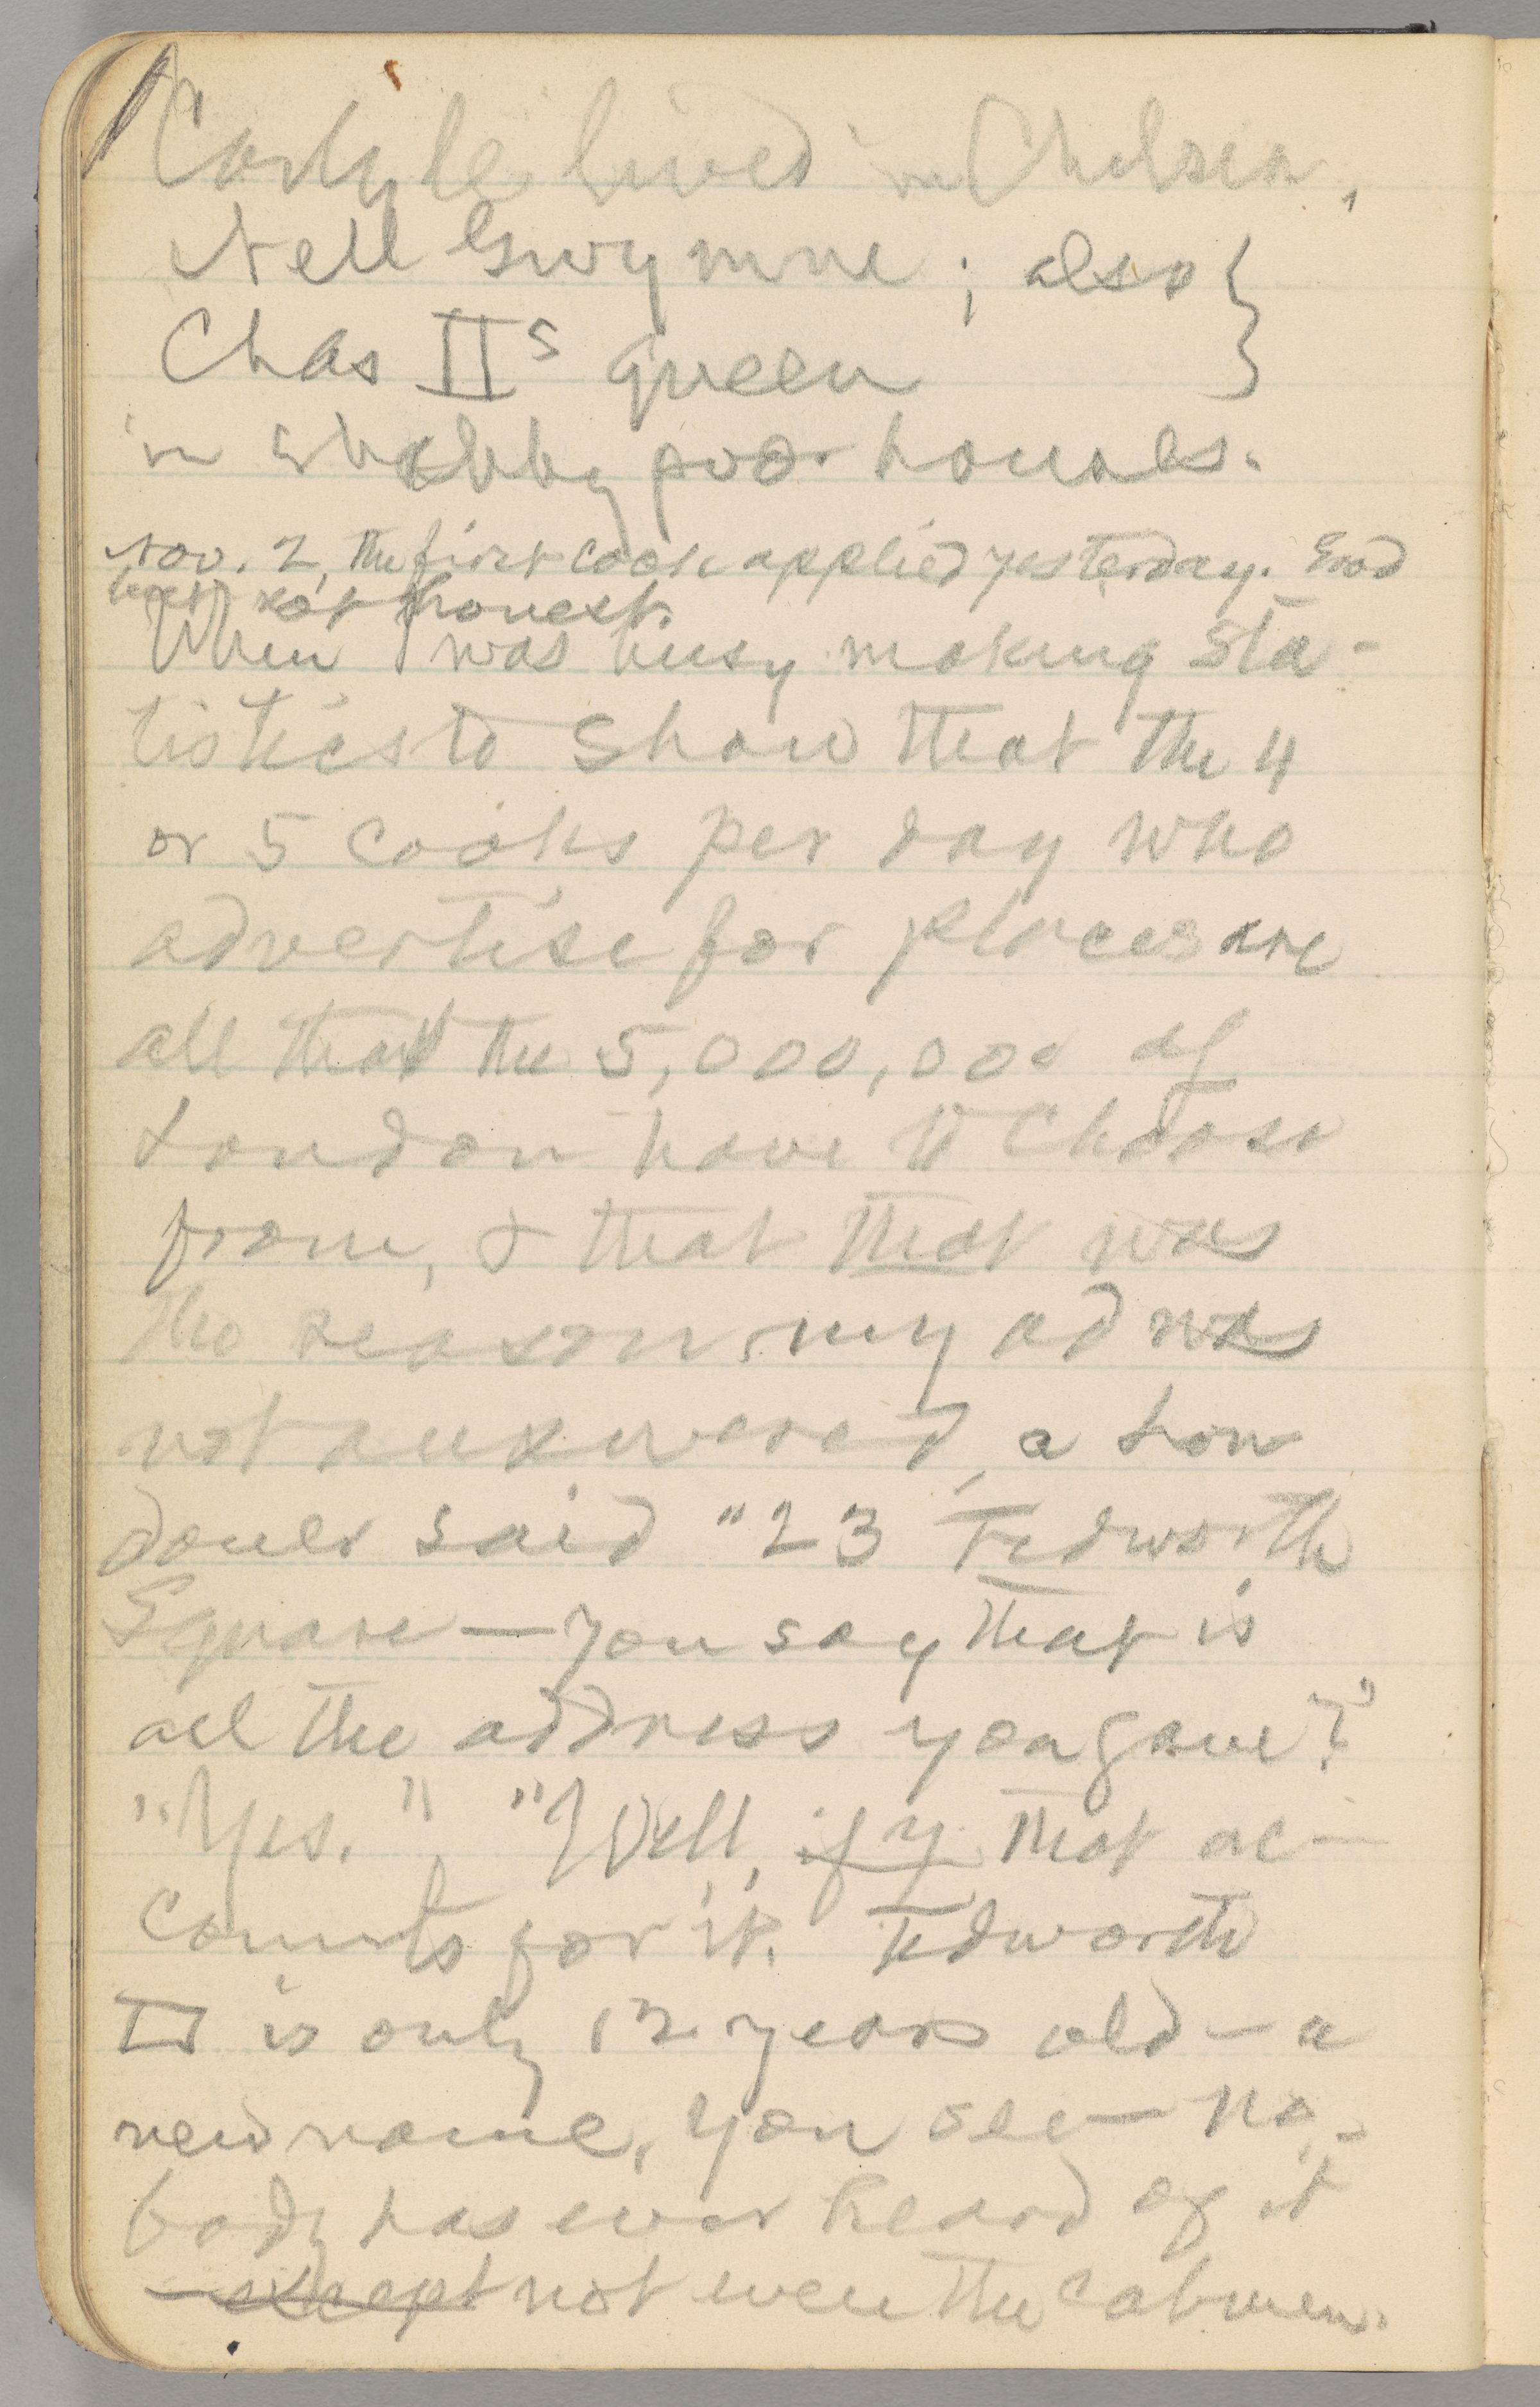 Carlyle lived in Chelsea,
Nell Gwynne; also }
Chas IIs queen
in shabby poor houses.
Nov. 2, the first cook applied yesterday. Good
but not honest.
When I was busy making sta-
tistics to show that the 4
or 5 cooks per day who
advertise for places are
all that the 5,000,000 of
London have to choose
from, & that that was
the reason my ad was
not answered, a Lon
doner said "23 Tedworth
Square—you say that is
all the address you gave?"
"Yes." "Well, if y that ac-
counts for it. Tedworth
□ is only 12 years old—a
new name, you see—no-
body has ever heard of it
—except not even the cabmen.